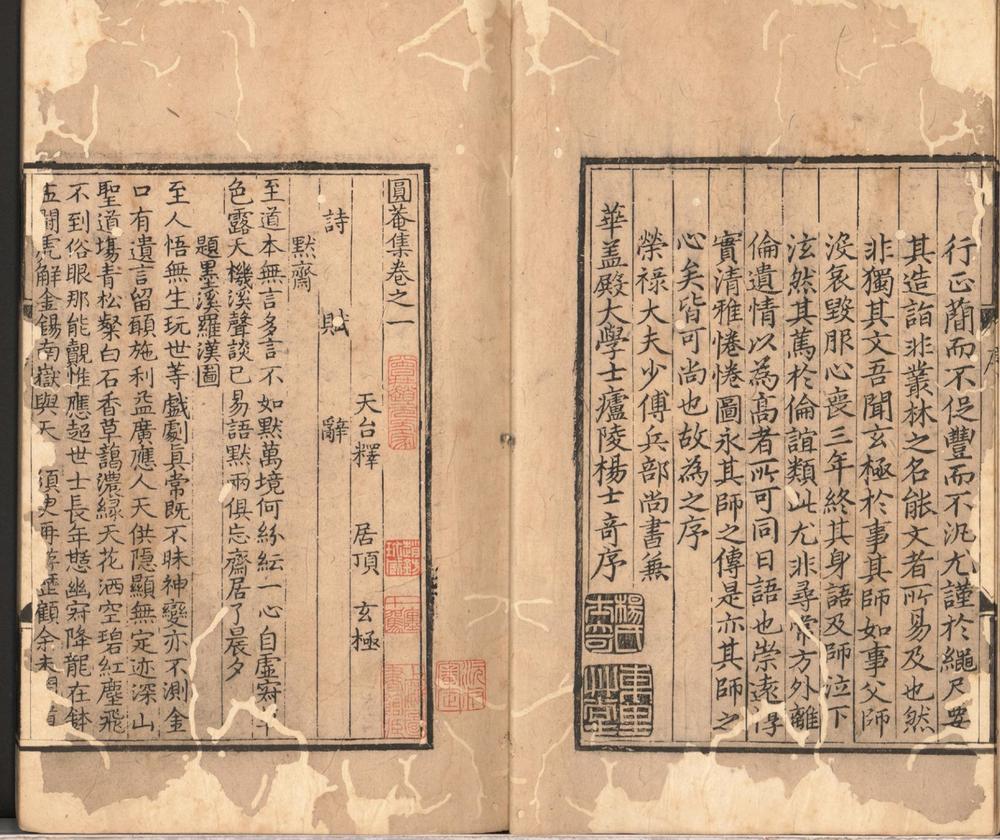 行正蕳而不促豐而不汎尤謹於繩尺要
其造詣非叢林之名能文者所易及也然
非獨其文吾聞玄極於事其師如事父師
沒哀毀服心喪三年終其身語及師泣下
泫然其篤於倫誼類此尤非尋常方外離
倫遺情以為高者所可同日語也崇遠淂
實清雅惓惓圖永其師之傳是亦其師之
心矣皆可尚也故為之序
榮禄大夫少傅兵部尚書兼
華盖殿大學士廬陵楊士竒序
楊氏士奇
圓菴集卷之一
天台釋 居頂 玄極
詩 賦 辭
默齋
至道本無言多言不如默萬境何紛紜一心自虛寂
色露天機溪聲談已易語默兩俱忘齋居了晨夕
題墨溪羅漢圖
至人悟無生玩世等戲劇真常既不昧神變亦不測金
口有遺言留頋施利益廣應人天供隱顯無定迹深山
聖道塲青松粲白石香草藹濃緑天花洒空碧紅塵飛
不到俗眼那能覿惟應超世士長年憇幽寂降龍在鉢
虎解金錫南嶽與天 須臾再 歷顧余未